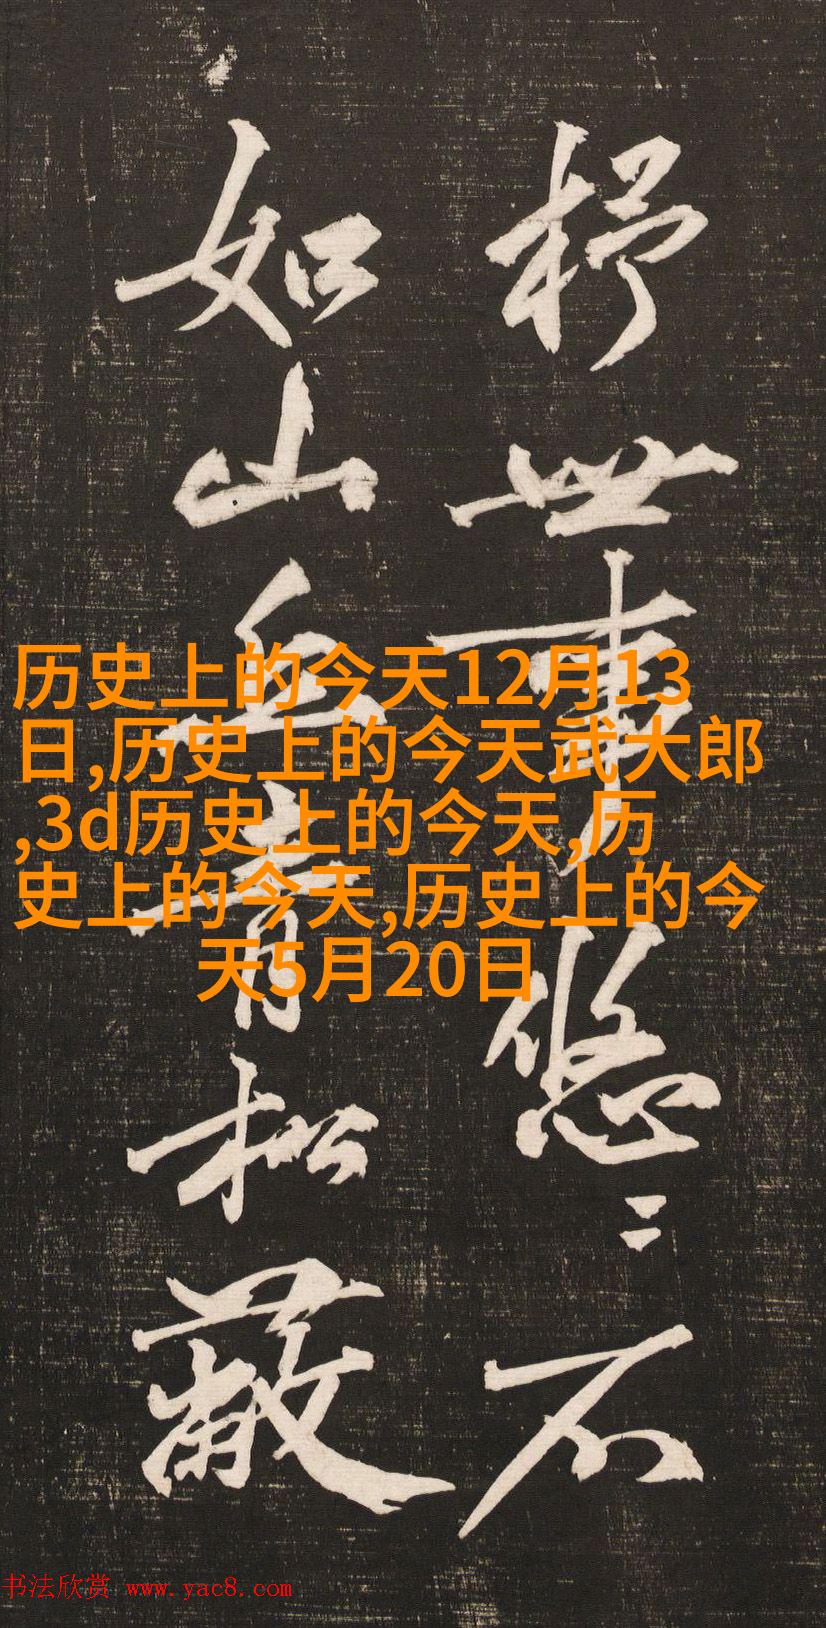 杼世事悠〻不
如山丘青松蔽
历史上的今天12月13
日,历史上的今天武大郎
,3d历史上的今天,历
史上的今天,历史上的今
天5月20日
书法欣赏 www.yac8.com